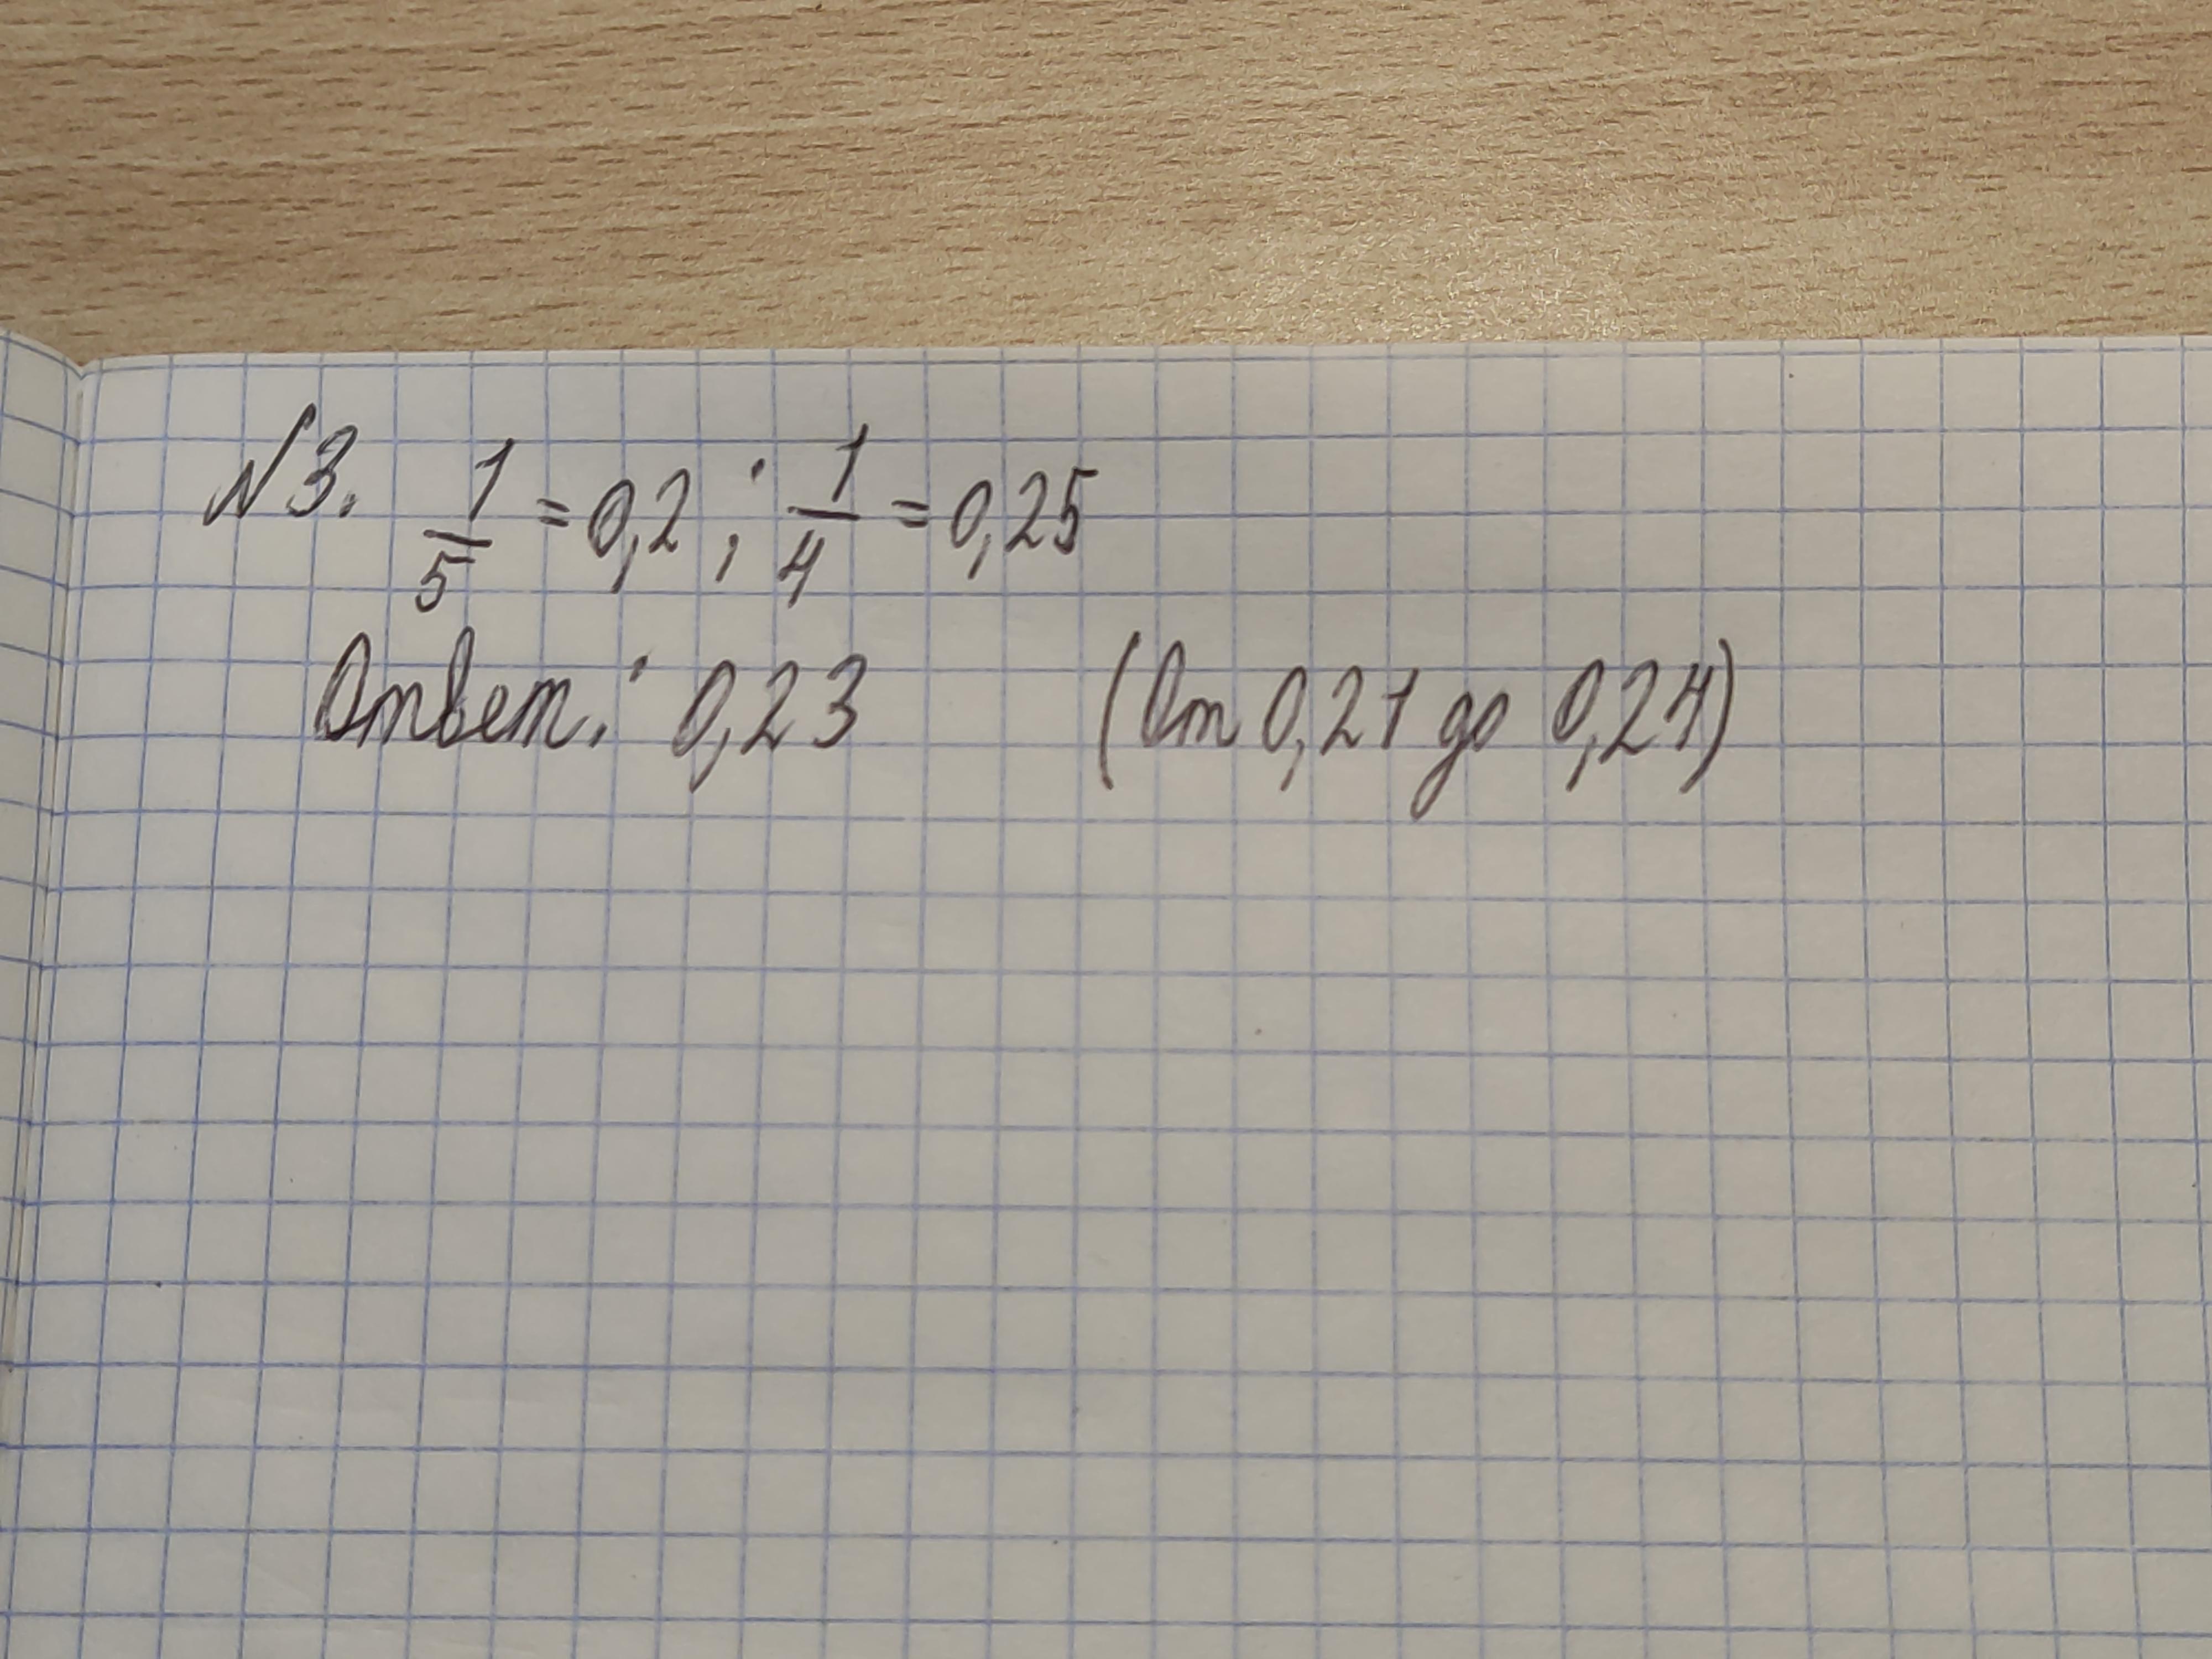 №3. 1/5 = 0,2 ; 1/4 = 0,25
Ответ: 0,23 (От 0,21 до 0,24)